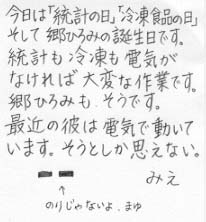 今日は「統計の日」「冷凍食品の日」
そして郷ひろみの誕生日です。
統計も冷凍も電気が
なければ大変な作業です。
郷ひろみも、そうです。
最近の彼は電気で動いて
います。そうとしか思えない。
みえ
↑
のりじゃないよ、まゆ